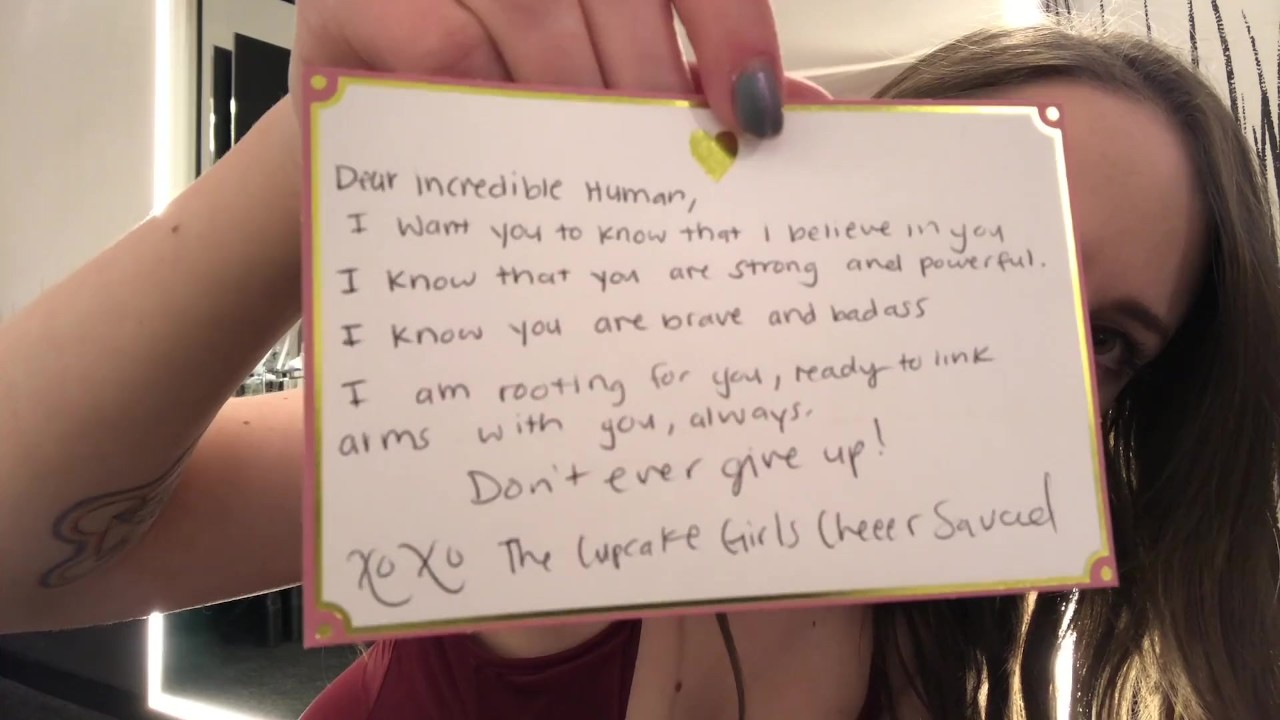 Dear incredible Human,
I want you to know that I believe in you
I know that you are strong and powerful.
I know you are brave and badass
I am rooting for you, ready to link
arms with you, always.
Don't ever give up!
XoXo The Cupcake Girls Cheeer Sauad